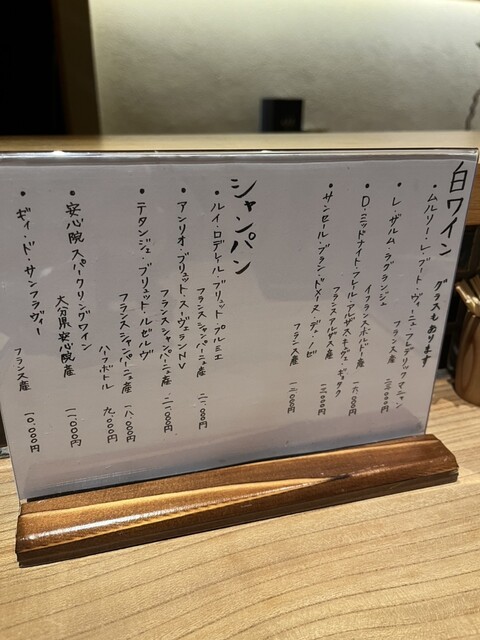 白ワイン
グラスもあります
・ムルソー・レ・プート・ヴィーニュ・フレデリックマニャン
フランス産 二三、〇〇〇円
・レ・ザルム ラグランジュ
フランスボルドー産 一六、〇〇〇円
・D・ミッドナイト・フレール・アルザス
フランスアルザス産 一三、〇〇〇円
・サンセール・ブラン・ドメーヌ・デ・
フランス産 一二、〇〇〇円
シャンパン
・ルイ・ロデレール・ブリット・プルミエ
フランスシャンパーニュ産 二二、〇〇〇円
・アンリオ・ブリュット・スーヴェランNV
フランスシャンパーニュ産 二一、〇〇〇円
・テタンジェ・ブリュット・ルゼルヴ
フランスシャンパーニュ産 一八、〇〇〇円
ハーフボトル 九、〇〇〇円
・安心院スパークリングワイン
大分県安心院産 一一、〇〇〇円
・ギィ・ド・サンフラヴィー
フランス産 一〇、〇〇〇円